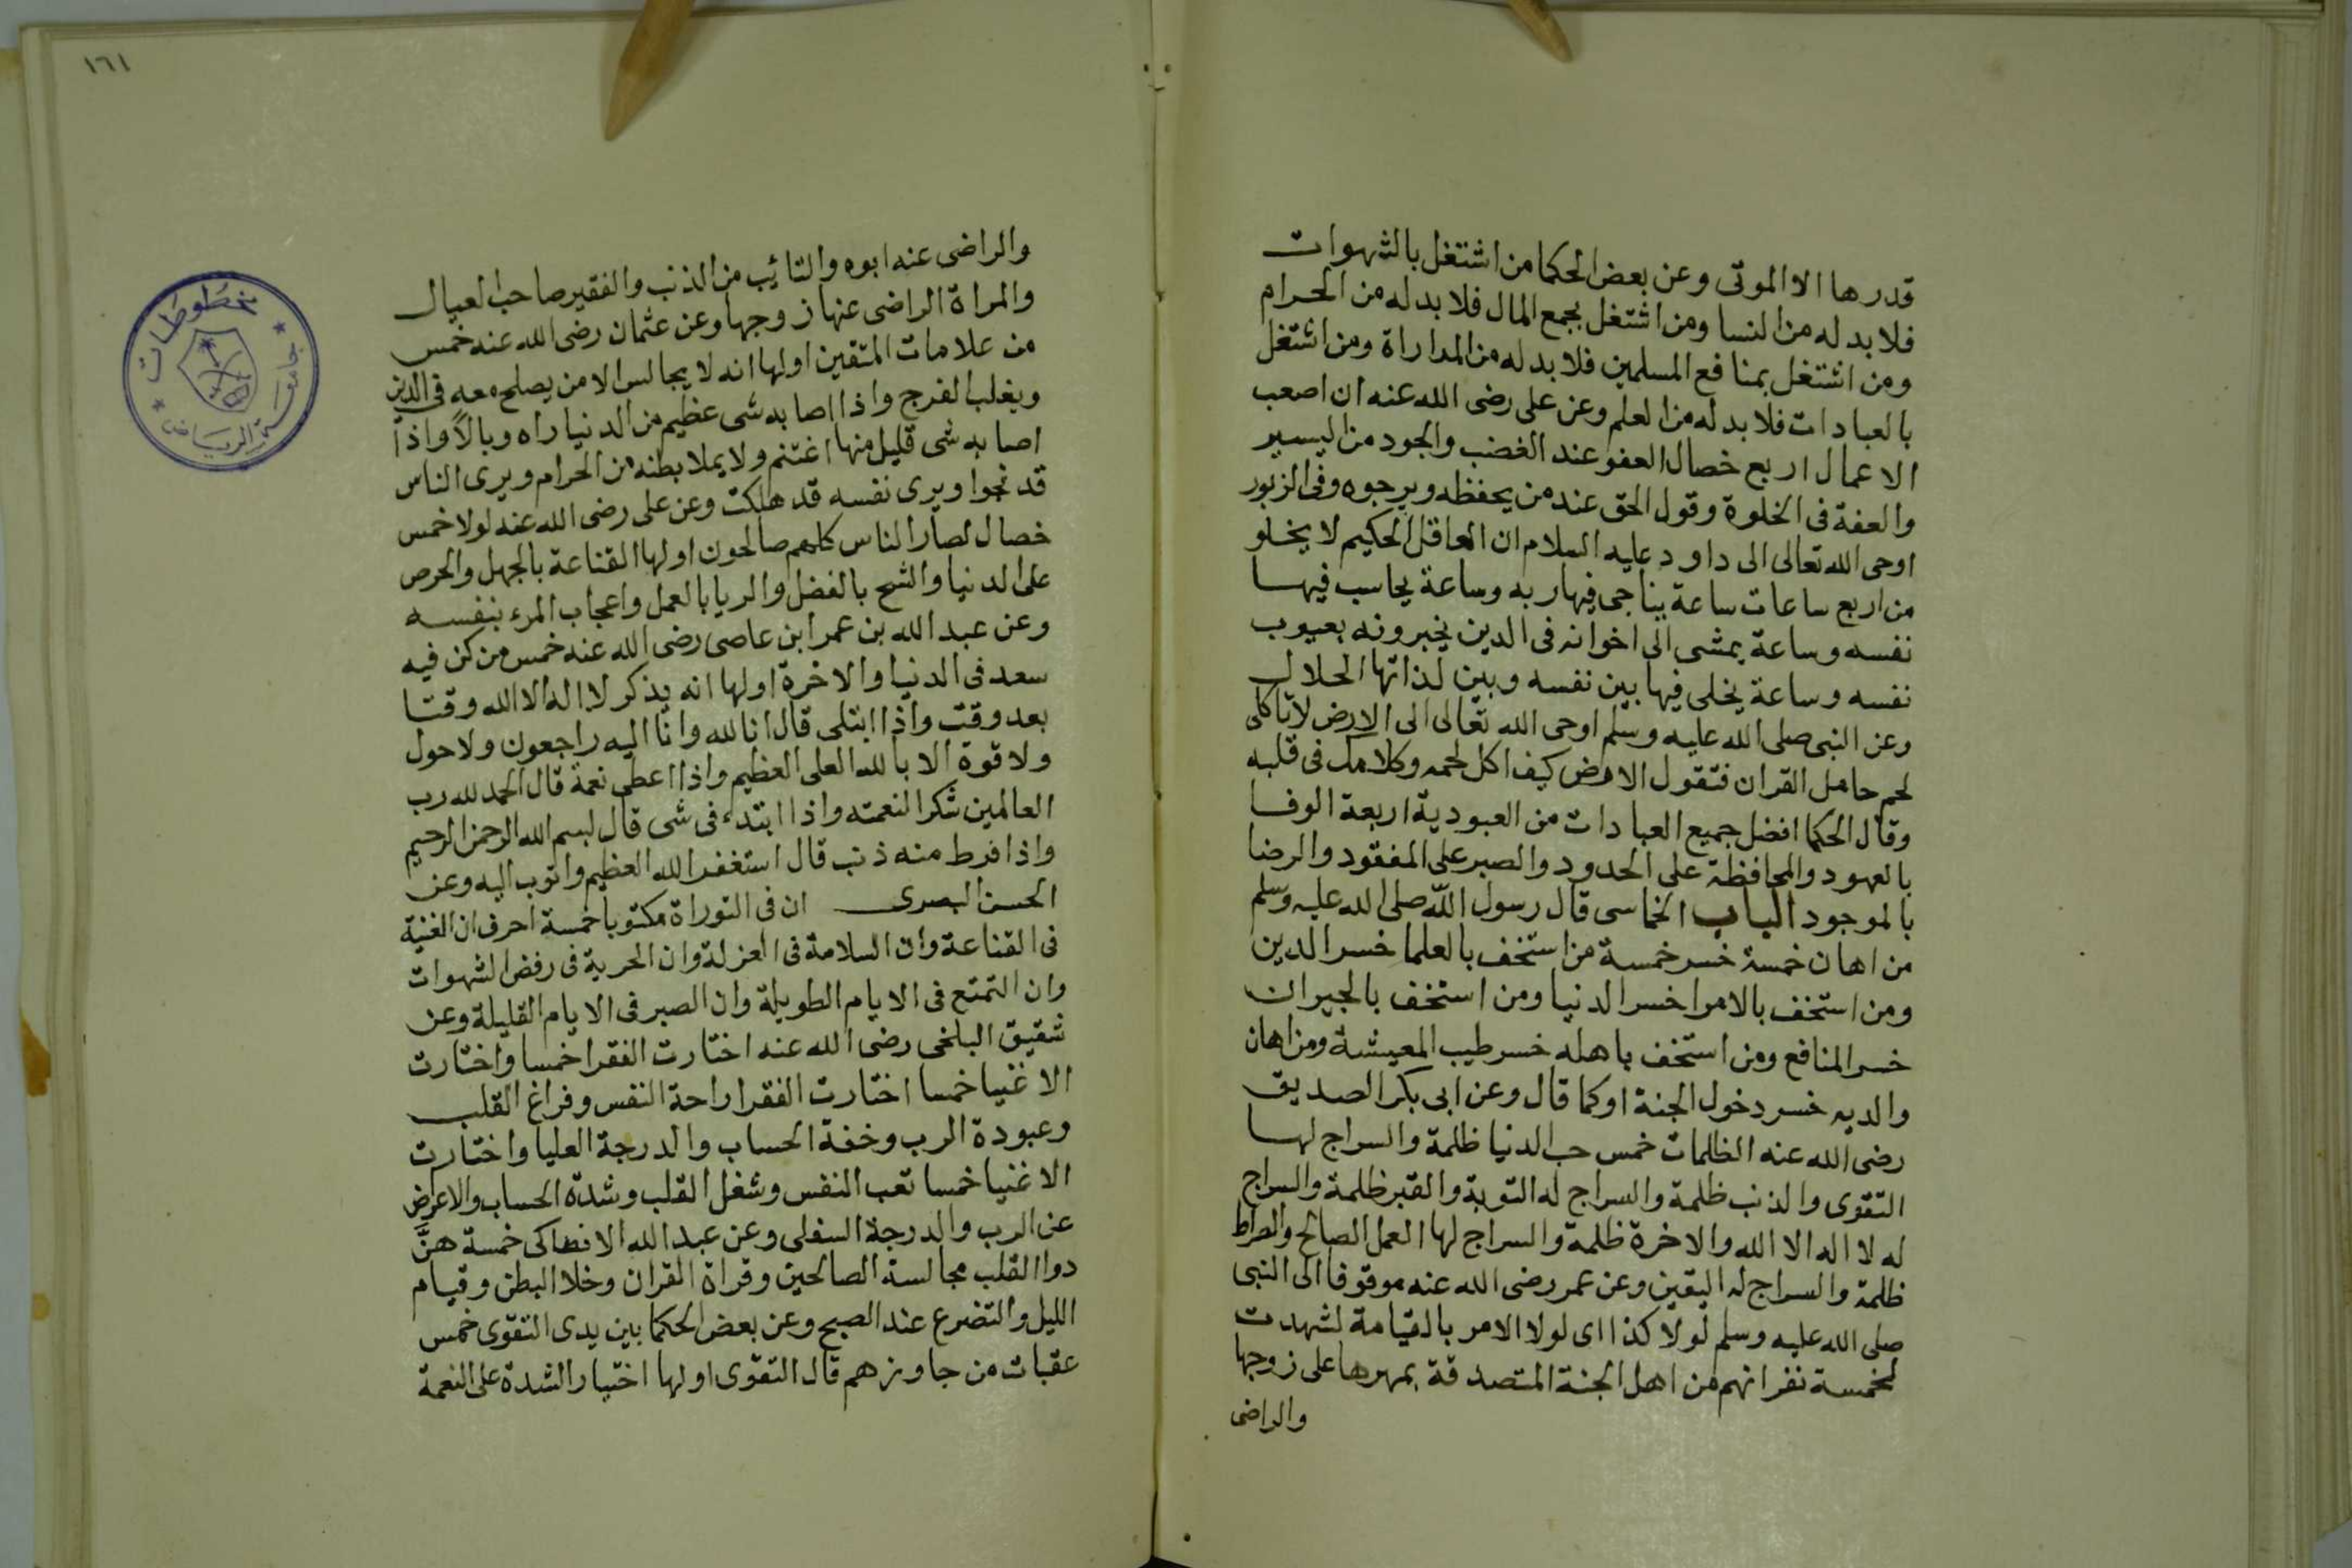 قدرها الا الموتى وعن بعض الحكما من اشتغل بالشهوات
فلا بد له من النسا ومن اشتغل بجمع المال فلا بد له من الحرام
ومن اشتغل بمنافع المسلمين فلا بد له من المداراة ومن اشتغل
بالعبادات فلا بد له من العلم وعن على رضى الله عنه ان اصعب
الاعمال اربع خصال العفو عند الغضب والجود من اليسير
والعفة فى الخلوة وقول الحق عند من يحفظه ويرجوه وفى الزبور
اوحى الله تعالى الى داود عليه السلام ان العاقل الحكيم لا يخلو
من اربع ساعات ساعة يناجى فيها ربه وساعة يحاسب فيها
نفسه وساعة يمشى الى اخوانه فى الدين يخبرونه بعيوب
نفسه وساعة يخلى فيها بين نفسه وبين لذاتها الحلال
وعن النبى صلى الله عليه وسلم اوحى الله تعالى الى الارض لا تاكلى
لحم حامل القران فتقول الارض كيف اكل لحمه وكلامك فى قلبه
وقال الحكما افضل جميع العبادات من العبودية اربعة الوفا
بالعهود والمحافظة على الحدود والصبر على المفقود والرضا
بالموجود الباب الخماسى قال رسول الله صلى الله عليه وسلم
من اهان خمسة خسر خمسة من استخف بالعلما خسر الدين
ومن استخف بالامرا خسر الدنيا ومن استخف بالجيران
خسر المنافع ومن استخف باهله خسر طيب المعيشة ومن اهان
والديه خسر دخول الجنة اوكما قال وعن ابى بكر الصديق
رضى الله عنه الظلمات خمس حب الدنيا ظلمة والسراج لها
التقوى والذنب ظلمة والسراج له التوبة والقبر ظلمة والسراج
له لا اله الا الله والاخرة ظلمة والسراج لها العمل الصالح والصراط
ظلمة والسراج له اليقين وعن عمر رضى الله عنه موقوفا الى النبى
صلى الله عليه وسلم لولا كذا اى لولا الامر بالقيامة لشهدت
لخمسة نفر انهم من اهل الجنة المتصدقة بمهرها على زوجها
والراضى
١٦١
والراضى عنه ابوه والتائب من الذنب والفقير صاحب العيال
والمراة الراضى عنها زوجها وعن عثمان رضى الله عنه خمس
من علامات المتقين اولها انه لا يجالس الا من يصلح معه فى الدين
ويغلب الفرج واذا اصابه شى عظيم من الدنيا راه وبالاً واذا
اصابه شى قليل منها اغتنم ولا يملا بطنه من الحرام ويرى الناس
قد نجوا ويرى نفسه قد هلكت وعن على رضى الله عنه لولا خمس
خصال لصار الناس كلهم صالحون اولها القناعة بالجهل والحرص
على الدنيا والشح بالفضل والريا بالعمل واعجاب المرء بنفسه
وعن عبد الله بن عمر ابن عاصى رضى الله عنه خمس من كن فيه
سعد فى الدنيا والاخرة اولها انه يذكر لا اله الا الله وقتا
بعد وقت واذا ابتلى قال انا لله وانا اليه راجعون ولا حول
ولا قوة الا بالله العلى العظيم واذا اعطى نعمة قال الحمد لله رب
العالمين شكرا لنعمته واذا ابتدء فى شى قال بسم الله الرحمن الرحيم
واذا فرط منه ذنب قال استغفر الله العظيم واتوب اليه وعن
الحسن البصرى ان فى التوراة مكتوبا خمسة احرف ان الغنية
فى القناعة وان السلامة فى العزلة وان الحرية فى رفض الشهوات
وان التمتع فى الايام الطويلة وان الصبر فى الايام القليلة وعن
شقيق البلخى رضى الله عنه اختارت الفقرا خمسا واختارت
الاغنيا خمسا اختارت الفقرا راحة النفس وفراغ القلب
وعبودة الرب وخفة الحساب والدرجة العليا واختارت
الاغنيا خمسا تعب النفس وشغل القلب وشدة الحساب والاعراض
عن الرب والدرجة السفلى وعن عبد الله الانطاكى خمسة هنّ
دوا القلب مجالسة الصالحين وقراة القران وخلا البطن وقيام
الليل والتضرع عند الصبح وعن بعض الحكما بين يدى التقوى خمس
عقبات من جاوزهم قال التقوى اولها اختيار الشدة على النعمة
مخطوطات
جامعة الرياض